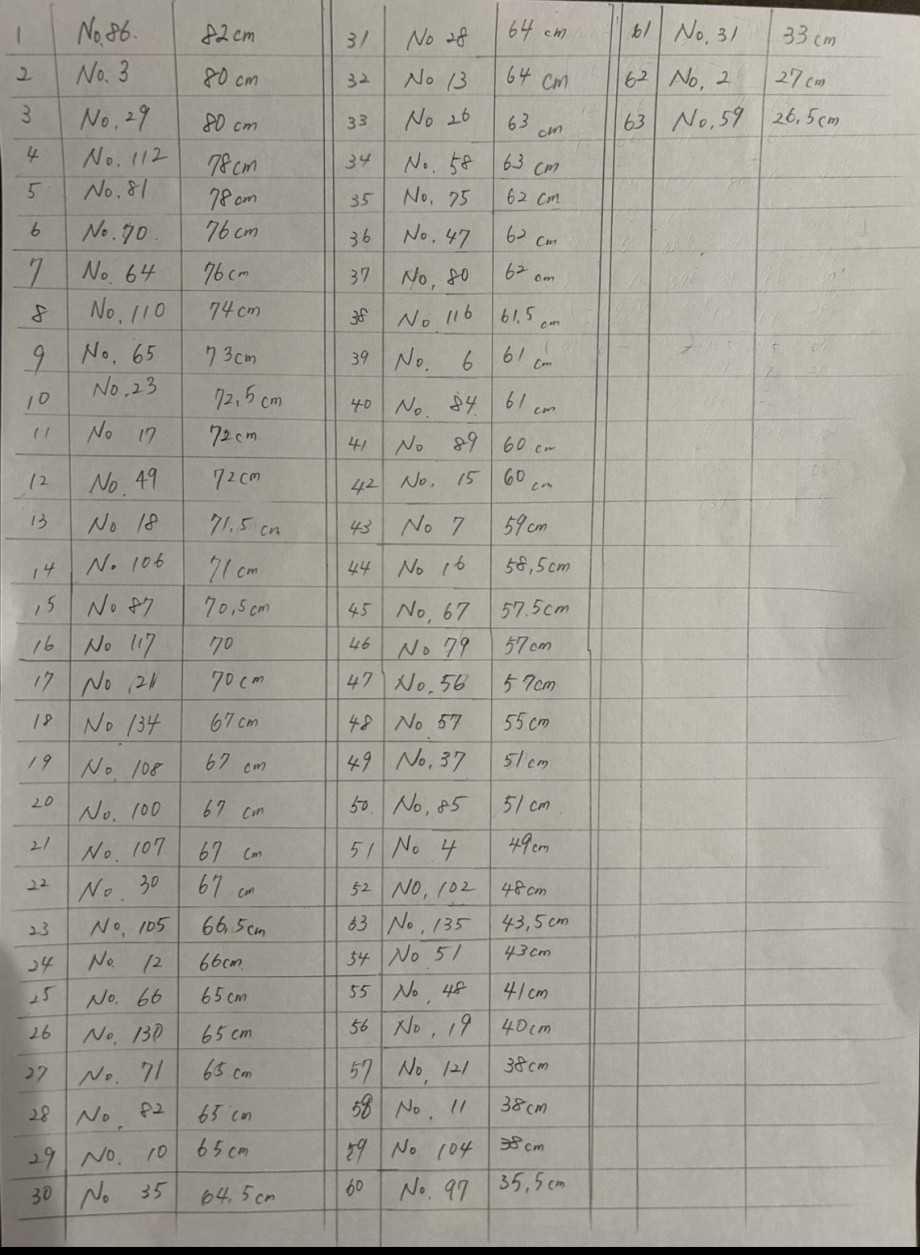 1 No.86. 82cm
2 No.3 80cm
3 No.29 80cm
4 No.112 78cm
5 No.81 78cm
6 No.70. 76cm
7 No.64 76cm
8 No.110 74cm
9 No.65 73cm
10 No.23 72,5cm
11 No 17 72cm
12 No.49 72cm
13 No 18 71.5cm
14 No.106 71cm
15 No 87 70,5cm
16 No 117 70
17 No.21 70cm
18 No 134 67cm
19 No.108 67cm
20 No.100 67cm
21 No.107 67cm
22 No.30 67cm
23 No.105 66,5cm
24 No.12 66cm
25 No.66 65cm
26 No.130 65cm
27 No.71 65cm
28 No.82 65cm
29 No.10 65cm
30 No 35 64.5cm
31 No 28 64cm
32 No 13 64cm
33 No 26 63cm
34 No.58 63cm
35 No.75 62cm
36 No.47 62cm
37 No,80 62cm
38 No.116 61.5cm
39 No.6 61cm
40 No.84 61cm
41 No 89 60cm
42 No.15 60cm
43 No 7 59cm
44 No 16 58,5cm
45 No,67 57.5cm
46 No 79 57cm
47 No.56 57cm
48 No 57 55cm
49 No,37 51cm
50 No,85 51cm
51 No 4 49cm
52 NO,102 48cm
53 No,135 43,5cm
54 No 51 43cm
55 No.48 41cm
56 No,19 40cm
57 No,121 38cm
58 No,11 38cm
59 No 104 38cm
60 No.97 35,5cm
61 No.31 33cm
62 No,2 27cm
63 No,59 26,5cm